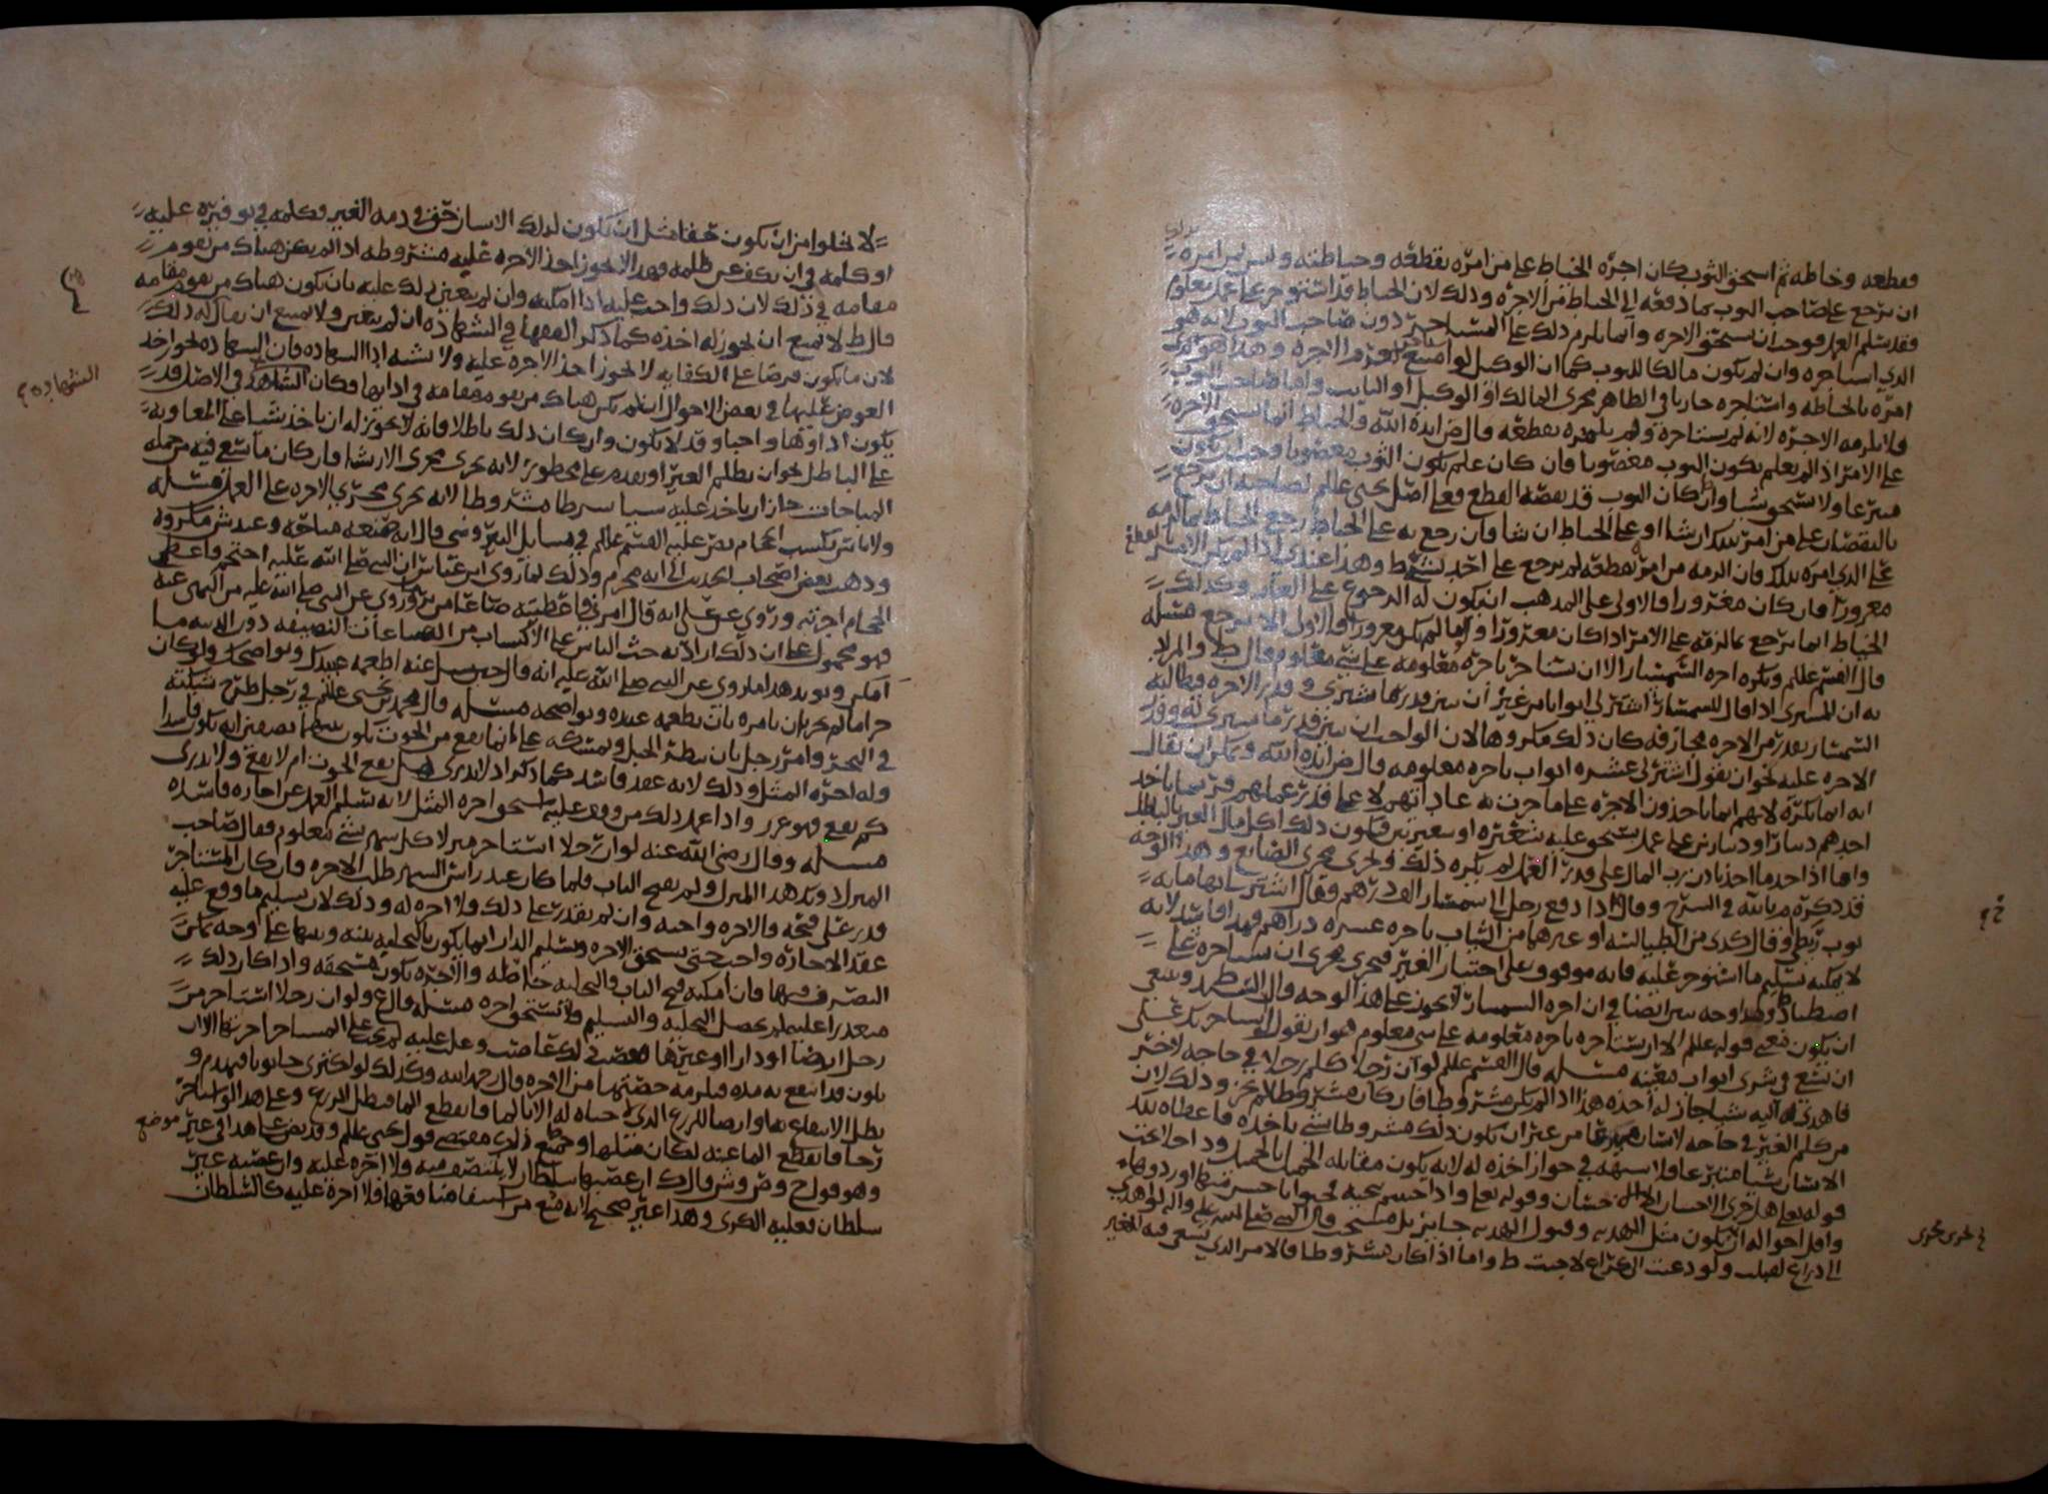 فقطعه وخاطه ثم استحق الثوب كان اجرة الخياط على من امره بقطعه وخياطته وليس لمن امره بذلك
ان يرجع على صاحب الثوب بما دفعه الى الخياط من الاجره وذلك لان الخياط قد استوجر على عمل معلوم
فقد سلم العمل فوجب ان يستحق الاجره وانما يلزم ذلك على المستاجر دون صاحب الثوب لانه هو
الذي استاجره وان لم يكون مالكا للثوب كما ان الوكيل لو امتنع غرم الاجره وهذا هو الذي
امره بالخياطه واستاجره جاريا في الظاهر مجرى المالك او الوكيل او النايب واما صاحب الثوب
فلا يلزمه الاجره لانه لم يستاجره ولم يامره بقطعه قال ض ايده الله والخياط انما يستحق الاجره
على الامر اذا لم يعلم بكون الثوب مغصوبا فان كان علم بكون الثوب مغصوبا وجب ان يكون
متبرعا ولا يستحق شيا وان كان الثوب قد نقصه القطع فعلى اصل يحيى عللم لصاحبه ان يرجع
بالنقصان على من امر بذلك ان شا او على الخياط ان شا فان رجع به على الخياط رجع الخياط بما لزمه
على الذي امره بذلك فان الزمه من امر بقطعه لم يرجع على احد بشي ط وهذا عندي اذا لم يكن الامر بالقطع
مغرورا فان كان مغرورا فالاولى على المذهب ان يكون له الرجوع على الغار وكذلك
الخياط انما يرجع بما لزمه على الامر اذا كان مغرورا واما اذا لم يكن مغرورا فالاولى الا يرجع مسله
قال القسم عللم ويكره اجره السمسار الا ان يستاجر باجره معلومه على شي معلوم قال ط والمراد
به ان المشتري اذا قال للسمسار اشتر لي اثوابا من غير ان يبين قدر ما يشتري وقدر الاجره وطالبه
السمسار بقدر من الاجره مجازفه كان ذلك مكروها لان الواجب ان يبين قدر ما يشتري له وقدر
الاجره عليه نحو ان يقول اشتر لي عشره اثواب باجره معلومه قال ض ايده الله ويمكن ان يقال
انه انما يكره لانهم انما ياخذون الاجره على ما جرت به عاداتهم لا على قدر عملهم فربما ياخذ
احدهم دينارا ودينارين على عمل يستحق عليه شعيره او شعيرتين فيكون ذلك اكل مال الغير بالباطل
واما اذا اخذ ما اخذ باذن رب المال على قدر العمل لم يكره ذلك وجرى مجرى الصانع وهذا الوجه
قد ذكره م بالله في الشرح وقال اذا دفع رجل الى سمسار الف درهم فقال اشتر بها مايه
ثوب زطي او قال كذى من الطيالسه او غيرهما من الثياب باجره عشره دراهم فهذا فاسد لانه
لا يمكنه تسليم ما استوجر عليه فانه موقوف على اختيار الغير فجرى مجرى ان يستاجره على
اصطياد وهذا وجه بين ايضا في ان اجره السمسار لا يجوز على هذا الوجه قال
ان يكون معنى قوله علللم الا ان يستاجره باجره معلومه على شي معلوم هو ان يقول استاجرتك على
ان تسعى في شرى اثواب معينه مسله قال القسم علللم لو ان رجلا كلم رجلا في حاجه لاخر
فاهدى له اليه شيا جاز له اخذه هذا اذا لم يكن مشروطا فان كان مشروطا لم يجز وذلك لان
من كلم الغير في حاجه لانسان متبرعا من غير ان يكون ذلك مشروطا بشي ياخذه فاعطاه بذلك
الانسان شيا متبرعا فلا شبهه في جواز اخذه له لانه يكون مقابله الجميل بالجميل وداخلا تحت
قوله تعلى هل جزى الاحسان الا الاحسان وقوله تعلى واذا حييتم بتحيه فحيوا باحسن منها او ردوها
واقل احواله ان يكون مثل الهديه وقبول الهديه جايز بل مستحب قال النبي صلى الله عليه واله لو اهدي
الي ذراع لقبلت ولو دعيت الى كراع لاجبت ط واما اذا كان مشروطا فالامر الذي يسعى فيه للغير
لا يخلوا من ان يكون حقا مثل ان يكون لذلك الانسان حق في ذمه الغير وكلمه في توفيره عليه
او كلمه في ان يكف عن ظلمه فهذا لا يجوز اخذ الاجره عليه مشروطه اذا لم يكن هناك من يقوم
مقامه في ذلك لان ذلك واجب عليه اذا امكنه وان لم يتعين ذلك عليه بان يكون هناك من يقوم مقامه
قال ط لا يمتنع ان يجوز له اخذه كما ذكر الفقها في الشهاده ان لم يتعين ولا يمتنع ان يقال له ذلك
لان ما يكون فرضا على الكفايه لا يجوز اخذ الاجره عليه ولا يشبه اداالشهاده فان الشهاده يجوز اخذ
العوض عليها في بعض الاحوال ان لم يكن هناك من يقوم مقامه في ادايها فكان الشاهد في الاصل قد
يكون اداوها واجبا وقد لا يكون وان كان ذلك باطلا فانه لا يجوز له ان ياخذ شيا على المعاونه
على الباطل نحو ان يظلم الغير او يقدم على محظور لانه يجرى مجرى الارشا فان كان ما يسعى فيه من جمله
المباحات جاز ان ياخذ عليه شيا شرطا مشروطا لانه يجرى مجرى الاجره على العمل مسله
ولا باس بكسب الحجام نص عليه القسم علللم في مسايل النيروسي قال انه صنعه مباحه وعند ش مكروه
وذهب بعض اصحاب الحديث الى انه محرم وذلك لما روى ابن عباس ان النبي صلى الله عليه احتجم فاعطى
الحجام اجرته وروي عن علي انه قال امرني فاعطيته صاعا من تمر وروي عن النبي صلى الله عليه من النهي عنه
فهو محمول على ان ذلك اراد به حث الناس على الاكتساب من الصناعات النضيفه دون الدنيه ما
امكن ويويد هذا ما روي عن النبي صلى الله عليه انه قال حين سيل عنه اطعمه عبيدك ونواضحك ولو كان
حراما لم يجز ان يامره بان يطعمه عبيده ونواضحه مسله قال محمد بن يحيى علللم في رجل طرح شبكته
في البحر وامر رجل بان ينظر الحبل ويمسكه على انما يقع من الحوت يكون بينهما نصفين انه يكون فاسدا
وله اجره المثل وذلك لانه عقد فاسد كما ذكر اذ لا يدرى هل يقع الحوت ام لا يقع ولا يدرى
كم يقع فهو غرر واذا عمل ذلك من وقع عليه استحق اجره المثل لانه تسلم العمل عن اجاره فاسده
مسله وقال رضي الله عنه لو ان رجلا استاجر منزلا كل شهر بشي معلوم فقال صاحب
المنزل دونك هذا المنزل ولم يفتح الباب فلما كان عند راس الشهر طلب الاجره فان كان المستاجر
قدر على فتحه فالاجره واجبه وان لم يقدر على ذلك فلا اجره له وذلك لان تسليم ما وقع عليه
عقد الاجاره واجب حتى يستحق الاجره وتسليم الدار انما يكون بالتخليه بينه وبينها على وجه يمكن
التصرف فيها فان امكنه فتح الباب فالتخليه حاصله والاجره تكون مستحقه واذا كان ذلك
متعذرا عليه لم يحصل التخليه والتسليم فلا يستحق اجره مسله قال ع ولو ان رجلا استاجر من
رجل ارضا او دارا او غيرها فغصب ذلك غاصب وغلب عليه لم يجب على المستاجر اجرتها الا ان
يكون قد انتفع به مده فيلزمه حصتها من الاجره قال رحمه الله وكذلك لو اكترى حانوتا فيهدم و
بطل الانتفاع بها وارضا للزرع الذي لا حياه له الا بالما فانقطع الما فبطل الزرع وعلى هذا لو استاجر
رحا فانقطع الما عنه لكان مثلها وجميع ذلك مقتضى قول يحيى علللم وقد نص على هذا في غير موضع
وهو قول ح وص وش وقال ك ان غصبها سلطان لا ينتصف منه ولا اجره عليه وان غصبه غير
سلطان فعليه الكرى وهذا غير صحيح لانه منع من استيفا منافعها فلا اجرة عليه كالسلطان
الشهاده